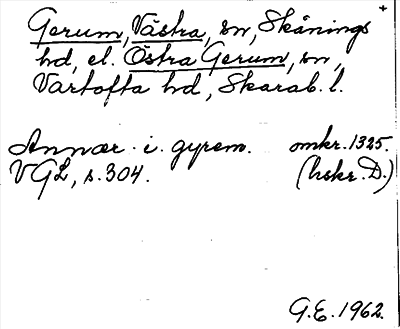 Gerum, Västra, sn, Skånings
hd, el. Östra Gerum, sn,
Vartofta hd, Skarab. l.
Annær · i · gyrem. omkr. 1325.
VGL, s. 304. (hskr. D.)
G.E. 1962.